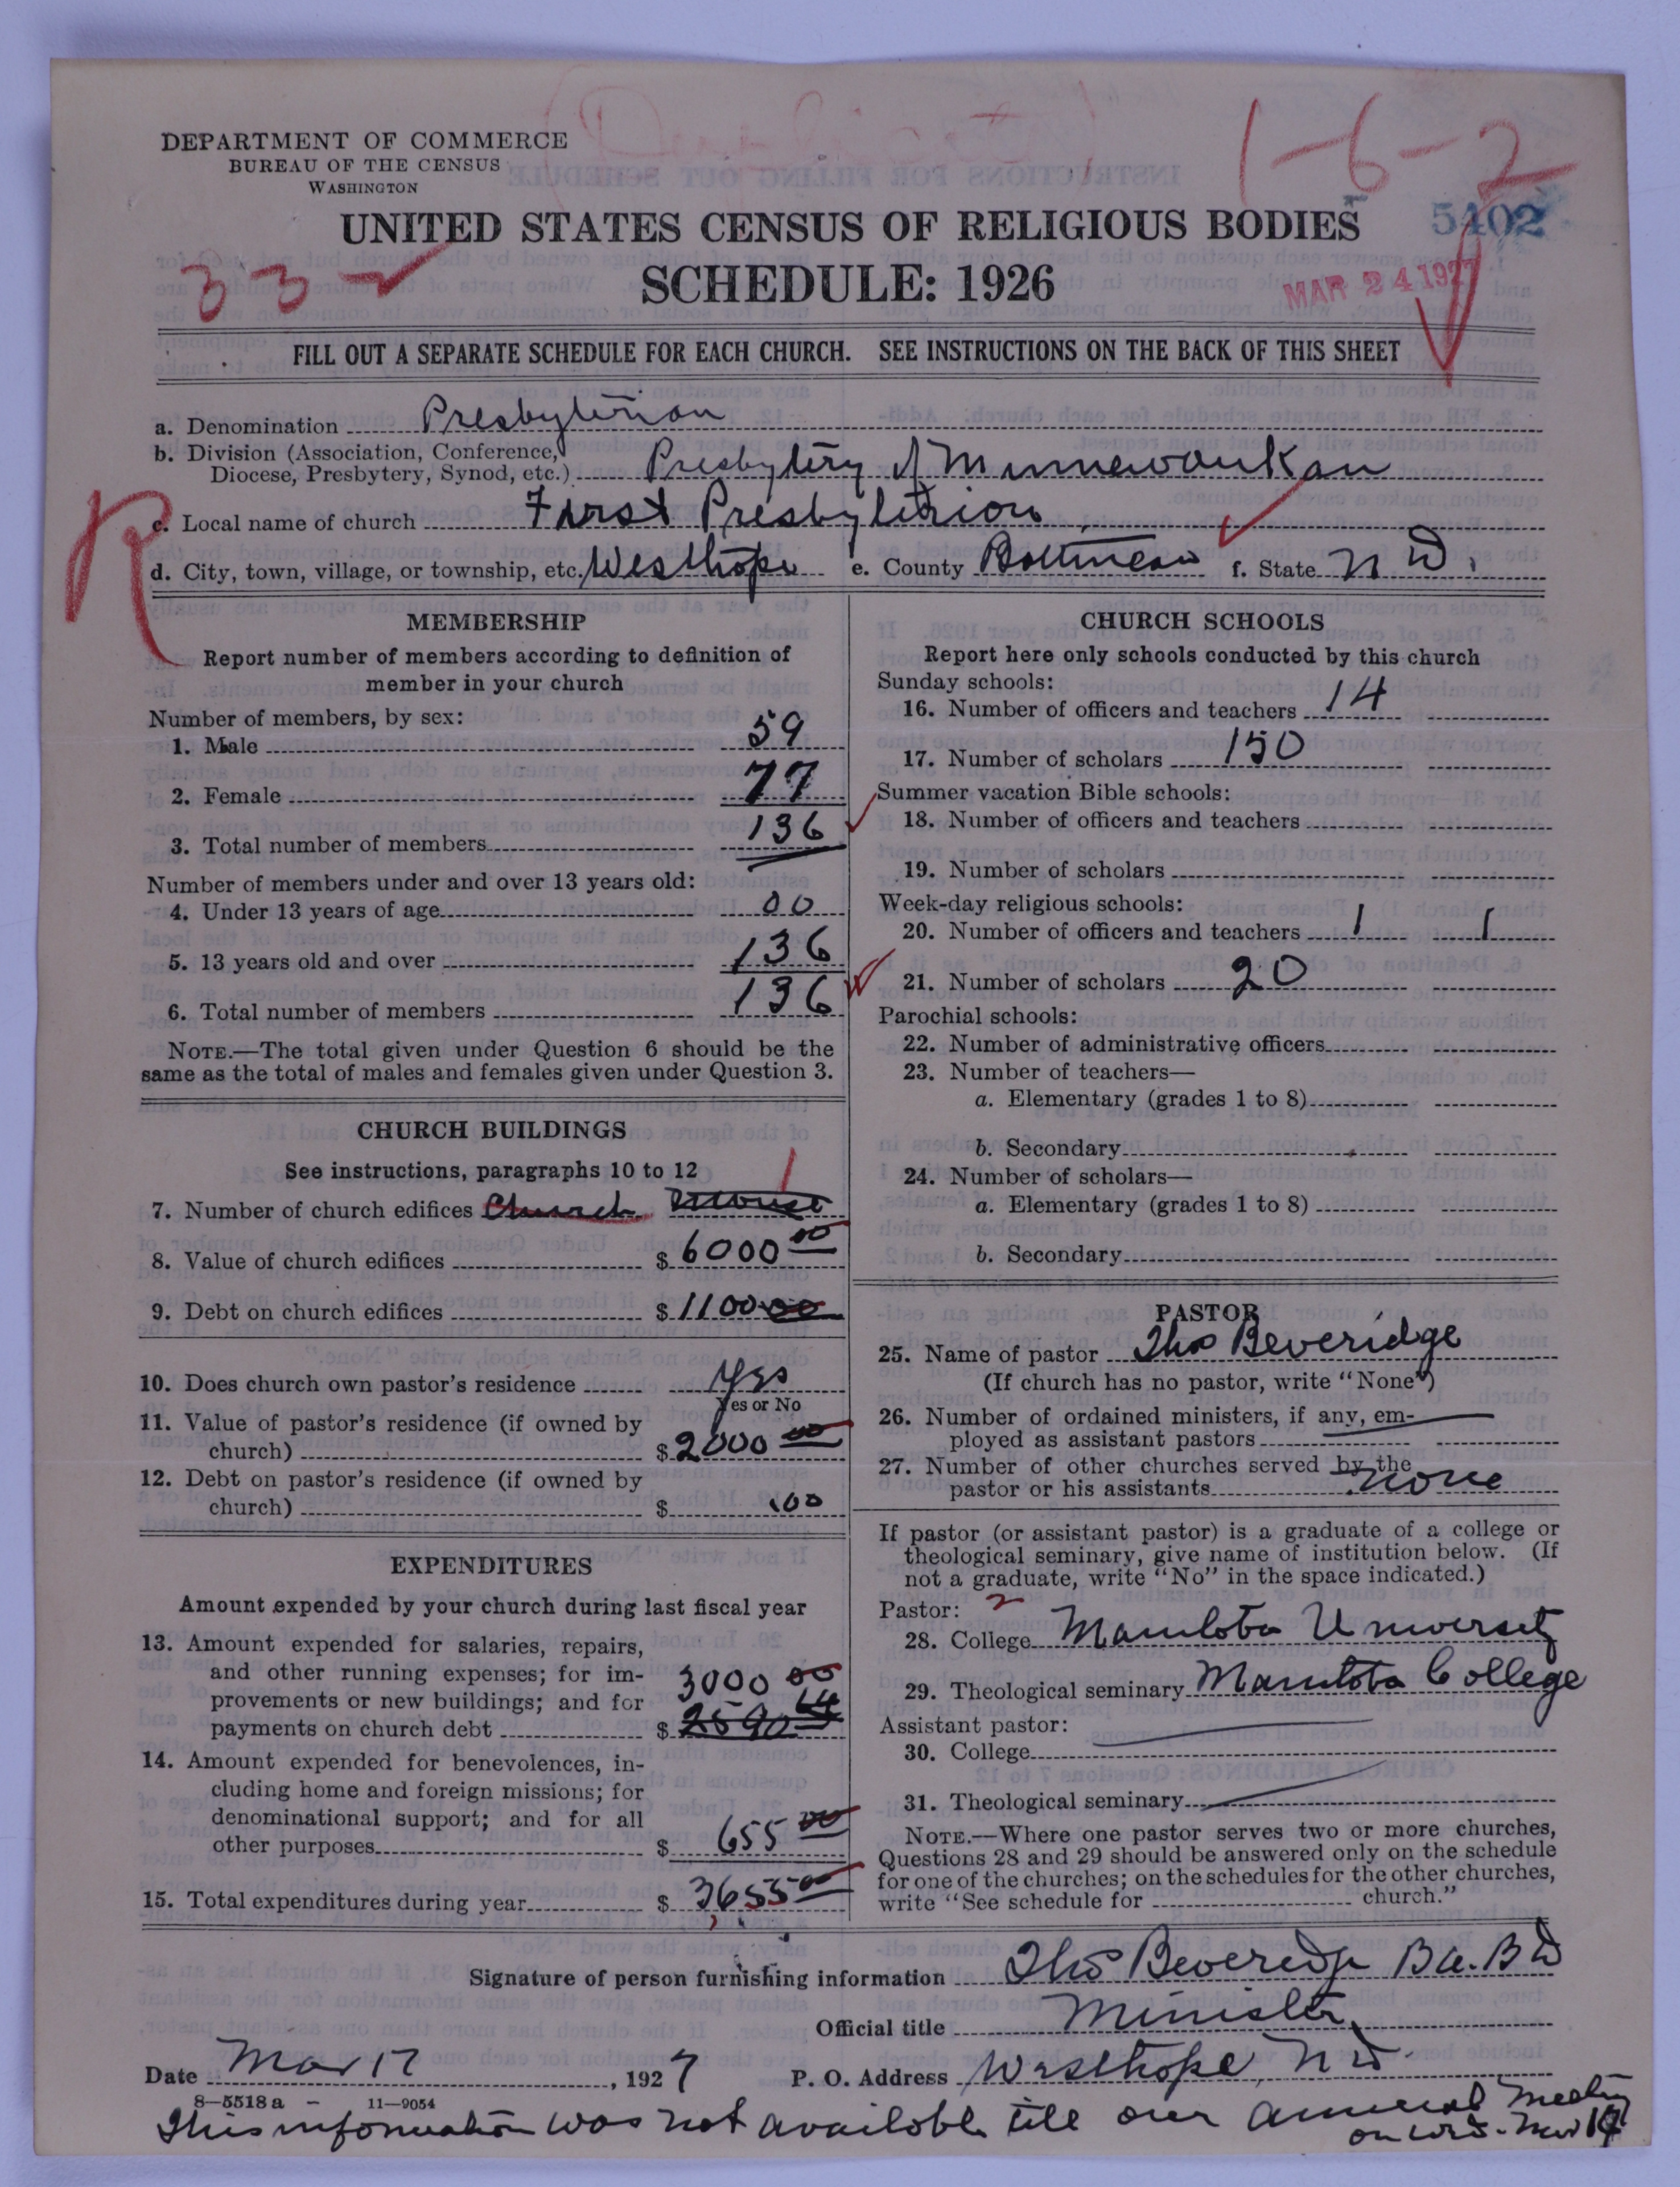 DEPARTMENT OF COMMERCE
BUREAU OF THE CENSUS
WASHINGTON
1-6-2
UNITED STATES CENSUS OF RELIGIOUS BODIES
5402
332
SCHEDULE: 1926
MAR 24 1927
FILL OUT A SEPARATE SCHEDULE FOR EACH CHURCH. SEE INSTRUCTIONS ON THE BACK OF THIS SHEET
a. Denomination Presbyterian
b. Division (Association, Conference,
Diocese, Presbytery, Synod, etc.) Presbytery of Minnewaukan
R
c. Local name of church First Presbyterian
d. City, town, village, or township, etc. Westhope e. County Bottineau f. State N D.
MEMBERSHIP
Report number of members according to definition of
member in your church
Number of members, by sex:
1. Male 59
2. Female 77
3. Total number of members 136
Number of members under and over 13 years old:
4. Under 13 years of age 00
5. 13 years old and over 136
6. Total number of members 136
NOTE.—The total given under Question 6 should be the
same as the total of males and females given under Question 3.
CHURCH BUILDINGS
See instructions, paragraphs 10 to 12
1
7. Number of church edifices Church
8. Value of church edifices $ 6000 00
9. Debt on church edifices $ 1100 00
10. Does church own pastor's residence Yes
Yes or No
11. Value of pastor's residence (if owned by
church) $ 2000 00
12. Debt on pastor's residence (if owned by
church) $ .00
EXPENDITURES
Amount expended by your church during last fiscal year
13. Amount expended for salaries, repairs,
and other running expenses; for im-
provements or new buildings; and for 3000 00
payments on church debt $ 2590
14. Amount expended for benevolences, in-
cluding home and foreign missions; for
denominational support; and for all
other purposes $ 655 00
15. Total expenditures during year $ 3655 00
CHURCH SCHOOLS
Report here only schools conducted by this church
Sunday schools:
16. Number of officers and teachers 14
17. Number of scholars 150
Summer vacation Bible schools:
18. Number of officers and teachers
19. Number of scholars
Week-day religious schools:
20. Number of officers and teachers 1 1
21. Number of scholars 20
Parochial schools:
22. Number of administrative officers
23. Number of teachers—
a. Elementary (grades 1 to 8)
b. Secondary
24. Number of scholars—
a. Elementary (grades 1 to 8)
b. Secondary
PASTOR
25. Name of pastor Thos Beveridge
(If church has no pastor, write "None")
26. Number of ordained ministers, if any, em-
ployed as assistant pastors
27. Number of other churches served by the
pastor or his assistants none
If pastor (or assistant pastor) is a graduate of a college or
theological seminary, give name of institution below. (If
not a graduate, write "No" in the space indicated.)
Pastor: 2
28. College Manitoba University
29. Theological seminary Manitoba College
Assistant pastor:
30. College
31. Theological seminary
NOTE.—Where one pastor serves two or more churches,
Questions 28 and 29 should be answered only on the schedule
for one of the churches; on the schedules for the other churches,
write "See schedule for church."
Signature of person furnishing information Thos Beveridge B.A. B D
Official title Minister
Date Mar 17, 1927 P. O. Address Westhope, N D.
8-5518a 11-9054
This information was not available till our annual meeting
on Mar